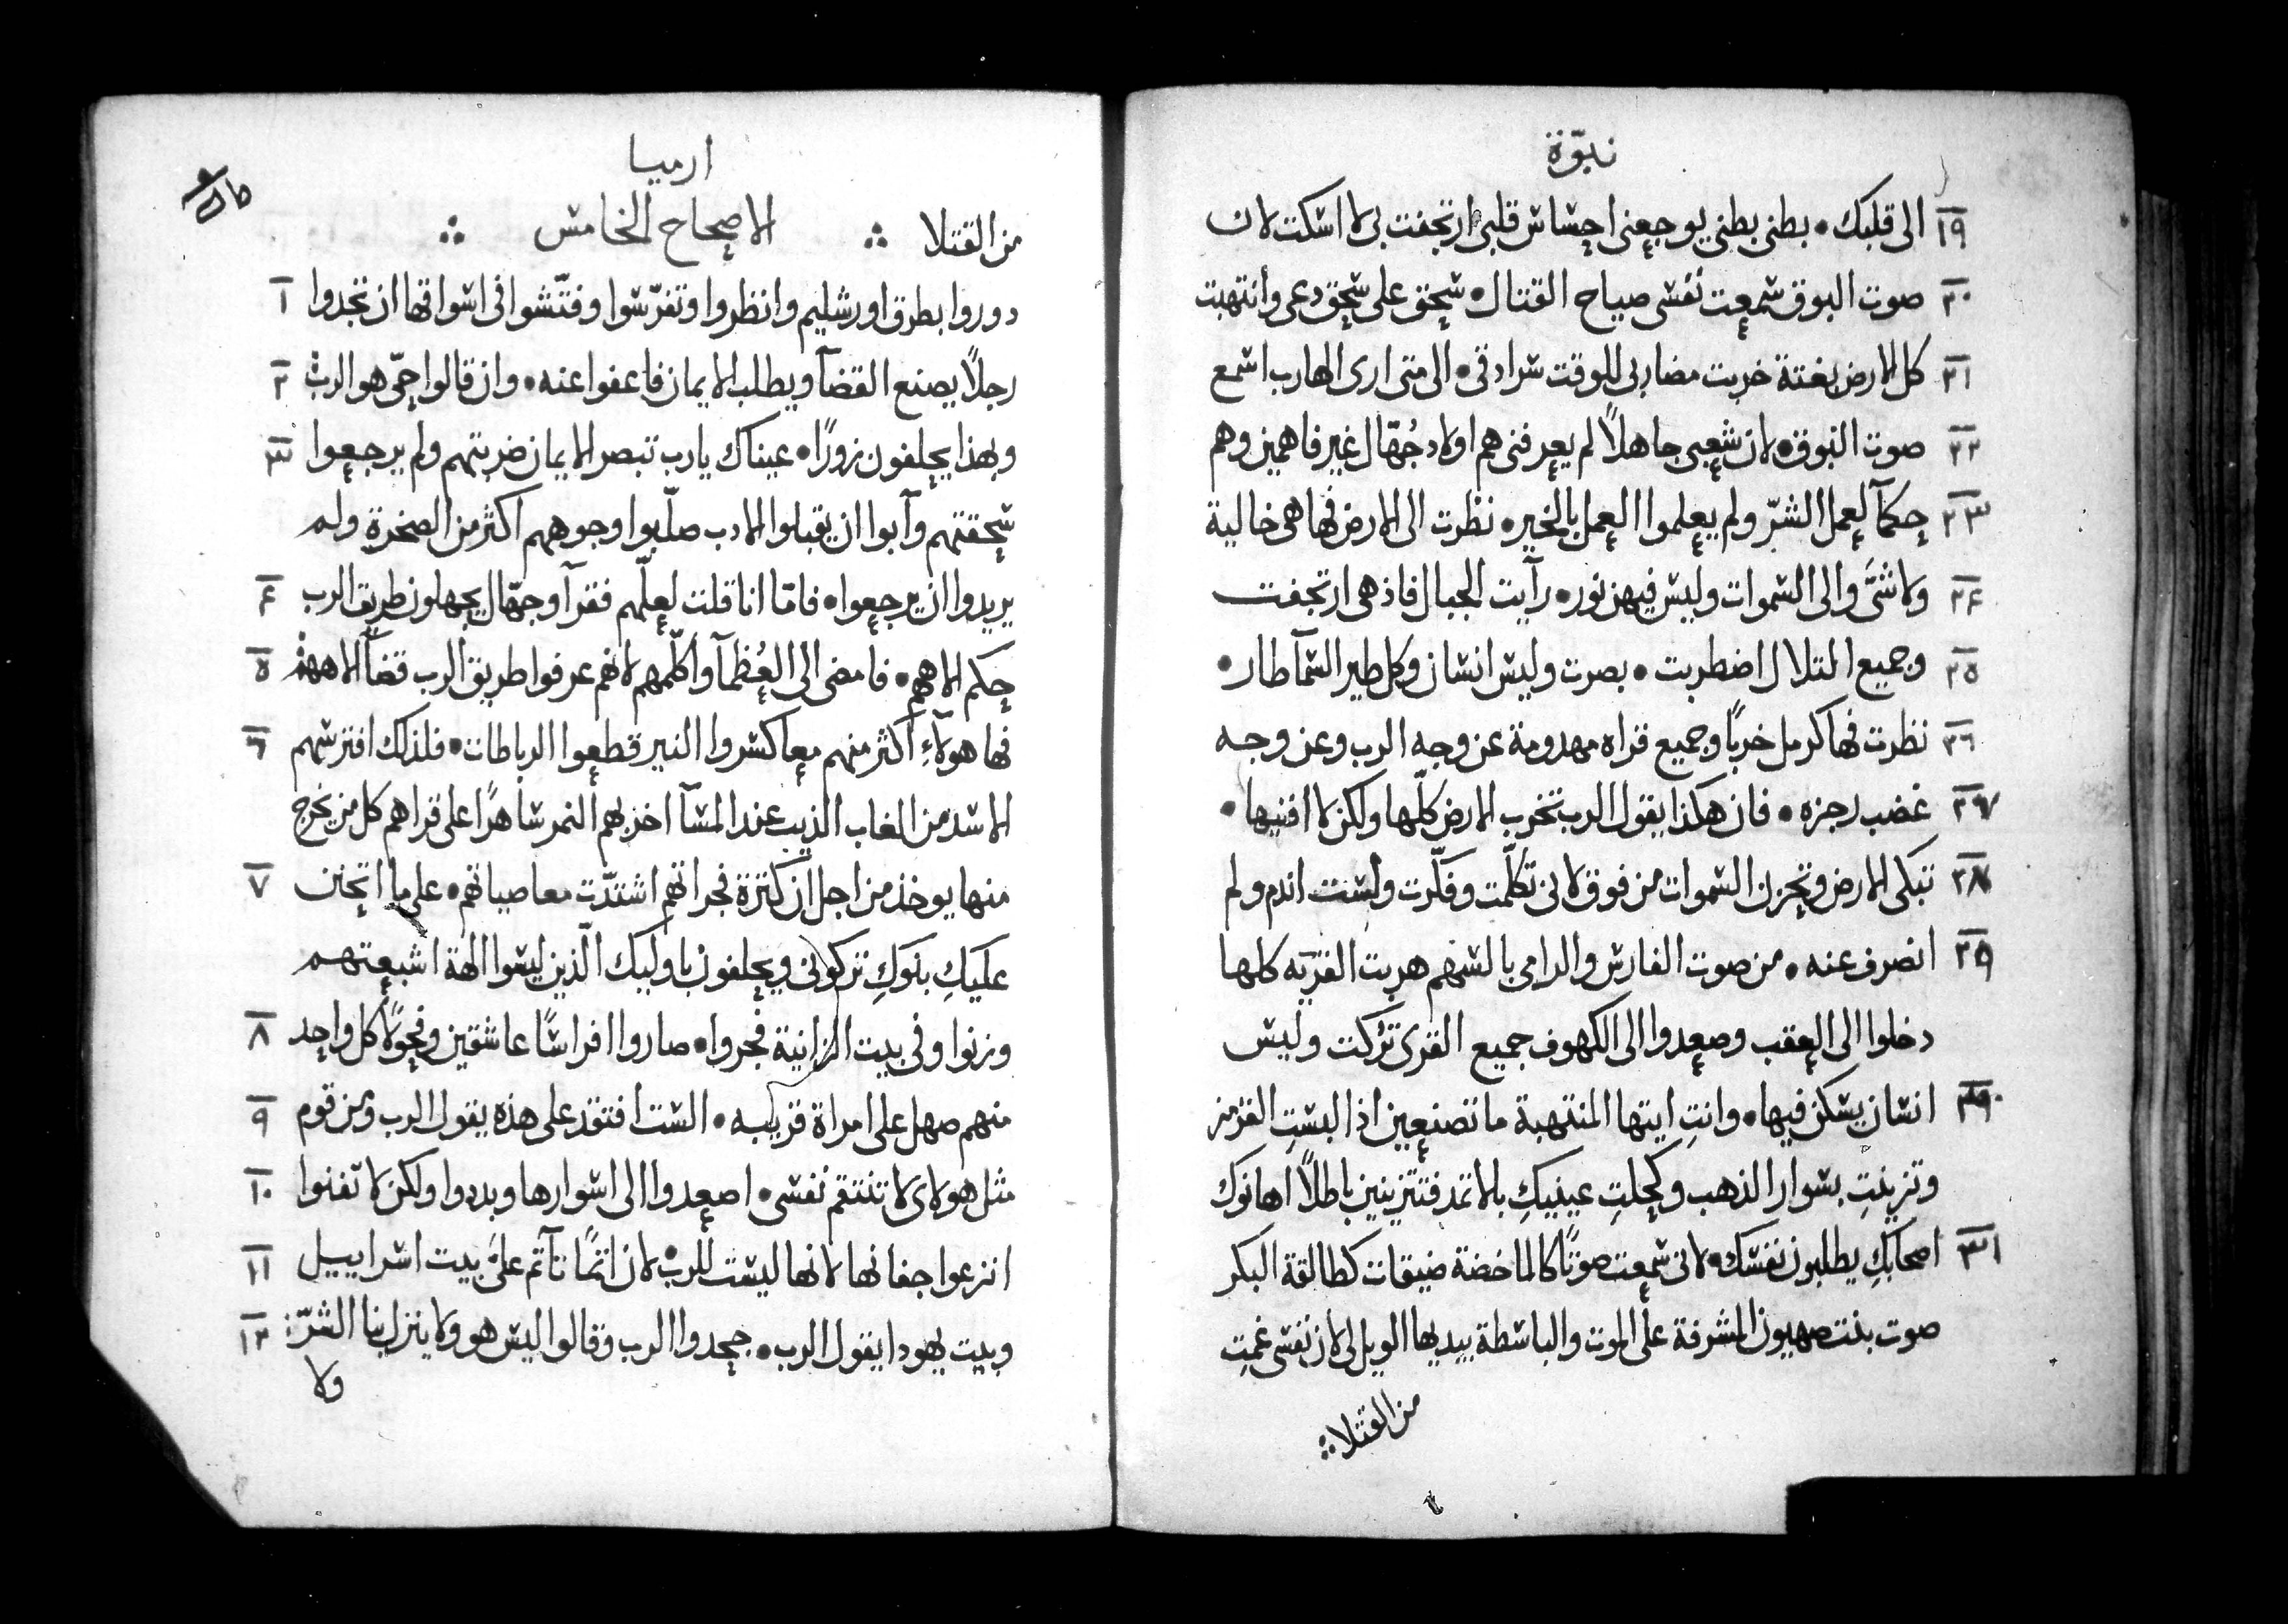 نبوّة
١٩ الى قلبك • بطنى بطنى يوجعنى احشاش قلبى ارتجفت بى لا اسكت لان
٢٠ صوت البوق سمعت نفسى صياح القتال • سحق على سحق دعى وانتهبت
٢١ كل الارض بغتة خربت مضاربى للوقت سرادقى • الى متى ارى الهارب اسمع
٢٢ صوت البوق • لان شعبى جاهلاً لم يعرفنى هم اولاد جُهّال غير فاهمين وهم
٢٣ حكمآ لعمل الشرّ ولم يعلموا العمل بالخير • نظرت الى الارض فها هى خالية
٢٤ ولا شىَّ والى السموات وليس فيهن نور • رآيت الجبال فاذ هى ارتجفت
٢٥ وجميع التلال اضطربت • بصرت وليس انسان وكل طير السمآ طار •
٢٦ نظرت فها كرمل خربًا وجميع قراه مهدومة عن وجه الرب وعن وجه
٢٧ غضب رجزه • فان هكذا يقول الرب تخرب الارض كلّها ولكن لا افنيها •
٢٨ تبكى الارض وتحزن السموات من فوق لانى تكلّمت وفكّرت ولست اندم ولم
٢٩ انصرف عنه • من صوت الفارس والرامى بالسهم هربت القريه كلها
دخلوا الى العقب وصعدوا الى الكهوف جميع القرى تُركت وليس
٣٠ انسان يسكن فيها • وانتِ ايتها المنتهبة ما تصنعين اذا لبستِ القرمز
وتزينتِ بسوار الذهب وكحلتِ عينيكِ بالاتمد فتتزينين باطلاً اهانوك
٣١ اصحابكِ يطلبون نفسك • لانى سمعت صوتًا كالماخضة ضيقات كطالقة البكر
صوت بنت صهيون المشرفة على الموت والباسطة بيديها الويل لى لان نفسى غمتِ
من القتلا

ارميا
من القتلا ∴ الاصحاح الخامس ∴
دوروا بطرق اورشليم وانظروا وتفرّسوا وفتّشوا فى اسواقها ان تجدوا ١
رجلاً يصنع القضآ ويطلب الايمان فاعفوا عنه • وان قالوا حىّ هو الرب ٢
وبهذا يحلفون زورًا • عيناك يارب تبصر الايمان ضربتهم ولم يرجعوا ٣
سحقتهم وآبوا ان يقبلوا الادب صلّبوا وجوههم اكثر من الصخرة ولم
يريدوا ان يرجعوا • فامّا انا قلت لعلّهم فقرآ وجهّال يجهلون طريق الرب ٤
حكم الاههم • فامضى الى العُظمآ واكلّمهم لانهم عرفوا طريق الرب قضآ الاههم ٥
فها هولآءِ اكثر منهم معا كسروا النير قطعوا الرباطات • فلذلك افترسهم ٦
الاسد من الغاب الذيب عند المسآ اخربهم النمر ساهرًا على قراهم كل من يخرج
منها يوخذ من اجل ان كترة فجراتهم اشتدّت معاصياتهم • على ما اتحنن ٧
عليكِ بنوكِ تركونى ويحلفون باوليك الّذين ليسوا الهة اشبعتهم
وزنوا وفى بيت الزانية فجروا • صاروا افراسًا عاشقين وفحولاً كل واحد ٨
منهم صهل على امراة قريبه • الست افتقد على هذه يقول الرب ومن قوم ٩
مثل هولاى لا تنتقم نفسى • اصعدوا الى اسوارها وبددوا ولكن لا تفنوا ١٠
انزعوا جفانها لانها ليست للرب • لان اتمًا تآتم علىَّ بيت اسراييل ١١
وبيت يهودا يقول الرب • جحدوا الرب وقالوا ليس هو ولا ينزل بنا الشرّ ١٢
ولا